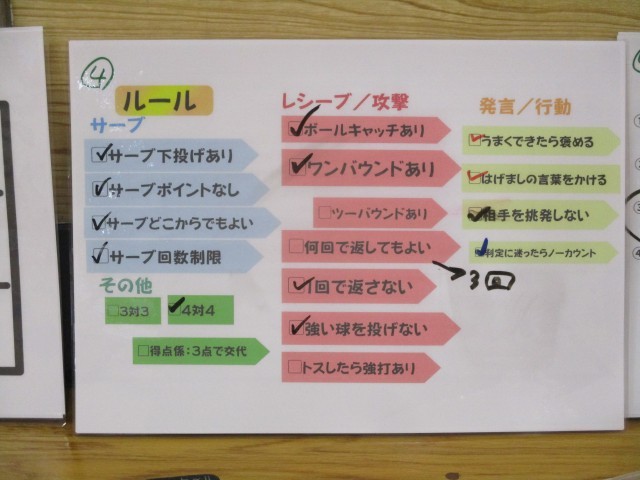 ④
ルール
サーブ
サーブ下投げあり
サーブポイントなし
サーブどこからでもよい
サーブ回数制限
その他
3対3
4対4
得点係:3点で交代
レシーブ/攻撃
ボールキャッチあり
ワンバウンドあり
ツーバウンドあり
何回で返してもよい
3回
1回で返さない
強い球を投げない
トスしたら強打あり
発言/行動
うまくできたら褒める
はげましの言葉をかける
相手を挑発しない
判定に迷ったらノーカウント